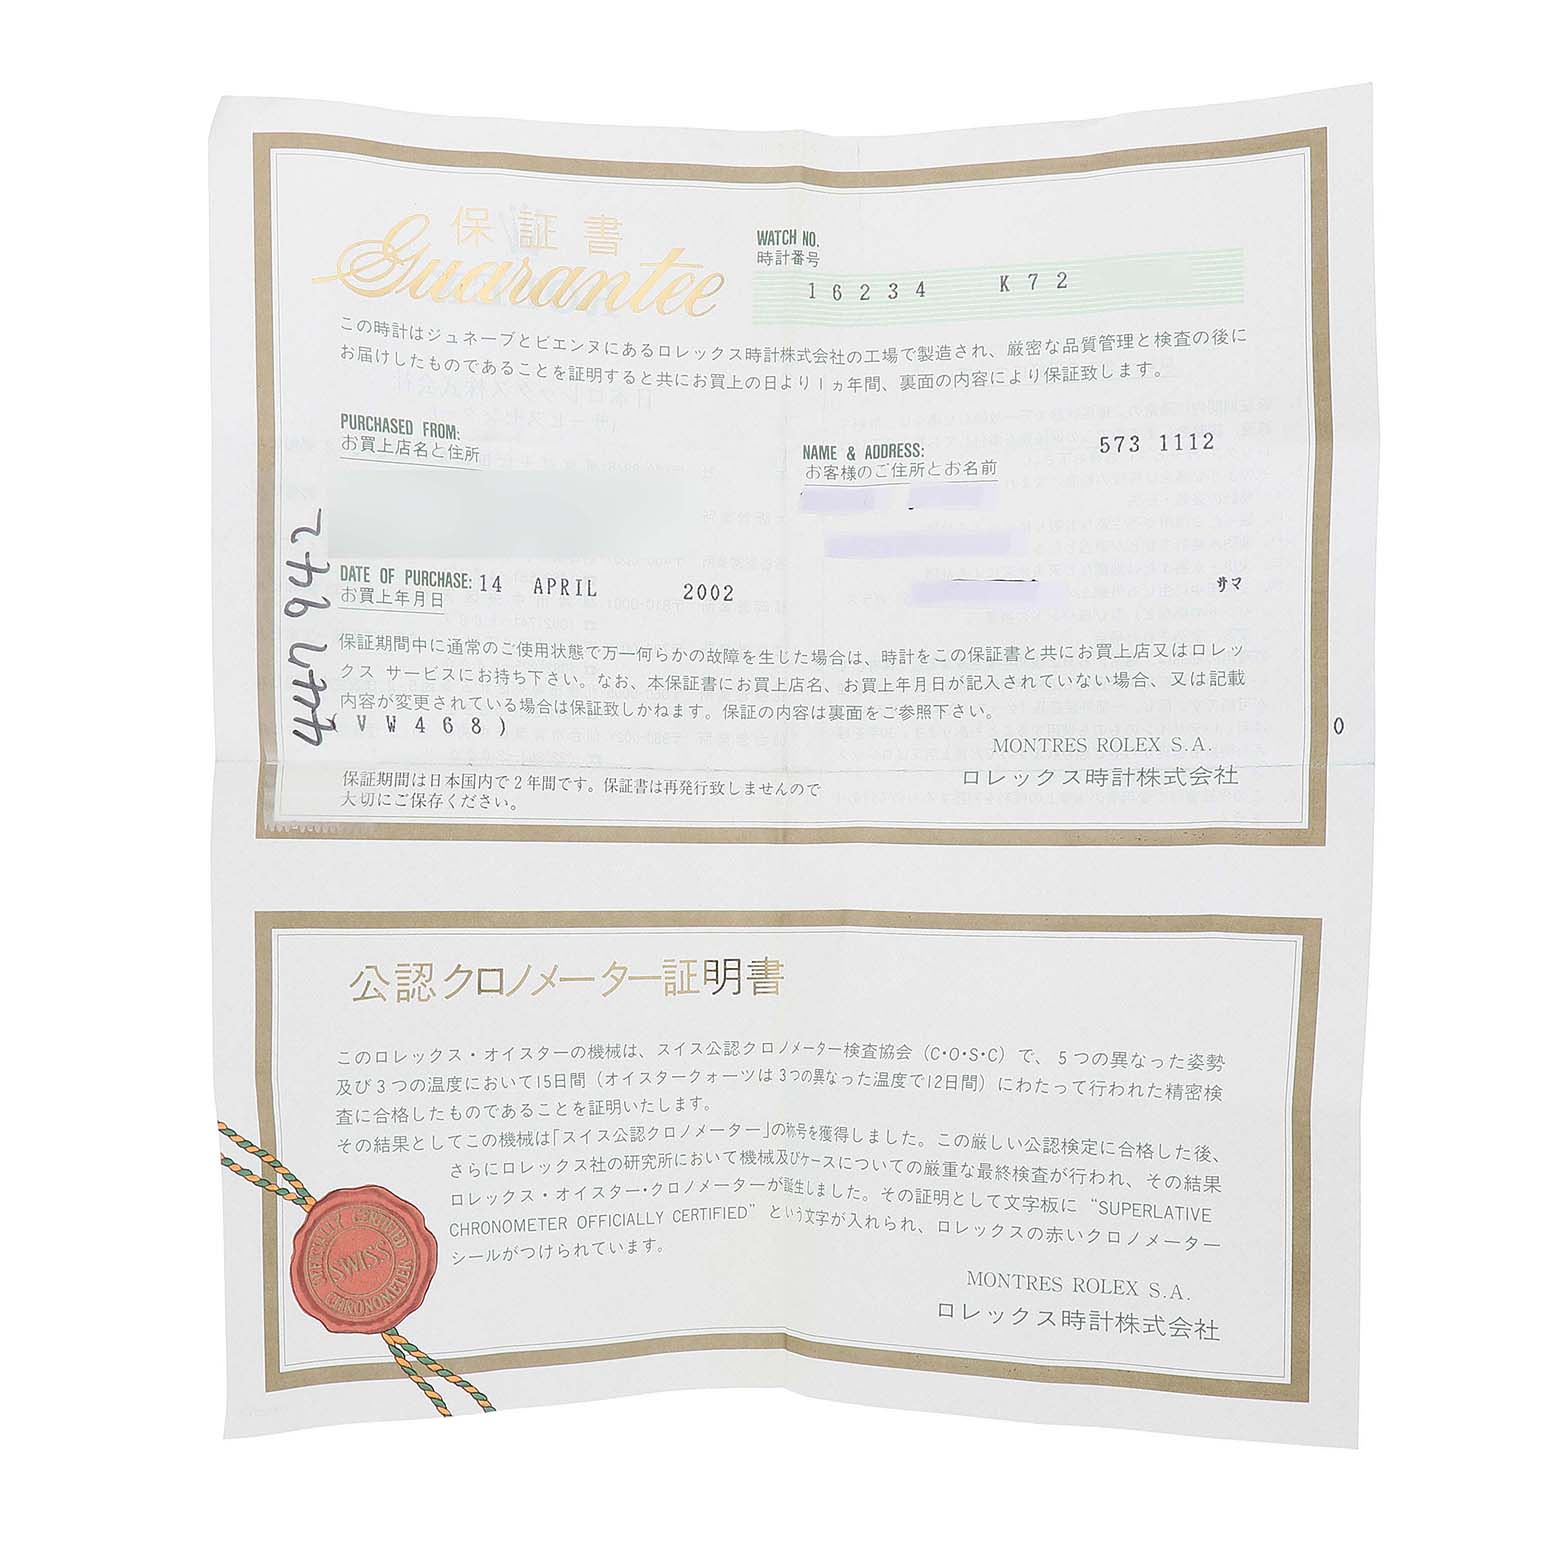 保証書
Guarantee
WATCH NO.
時計番号
16234 K72
この時計はジュネーブとビエンヌにあるロレックス時計株式会社の工場で製造され、厳密な品質管理と検査の後に
お届けしたものであることを証明すると共にお買上の日より1ヵ年間、裏面の内容により保証致します。
PURCHASED FROM:
お買上店名と住所
NAME & ADDRESS:
お客様のご住所とお名前
573 1112
サマ
DATE OF PURCHASE: 14 APRIL 2002
お買上年月日
447942
保証期間中に通常のご使用状態で万一何らかの故障を生じた場合は、時計をこの保証書と共にお買上店又はロレッ
クス サービスにお持ち下さい。なお、本保証書にお買上店名、お買上年月日が記入されていない場合、又は記載
内容が変更されている場合は保証致しかねます。保証の内容は裏面をご参照下さい。
(VW468)
0
MONTRES ROLEX S.A.
ロレックス時計株式会社
保証期間は日本国内で2年間です。保証書は再発行致しませんので
大切にご保存ください。
公認クロノメーター証明書
このロレックス・オイスターの機械は、スイス公認クロノメーター検査協会（C・O・S・C）で、5つの異なった姿勢
及び3つの温度において15日間（オイスタークォーツは3つの異なった温度で12日間）にわたって行われた精密検
査に合格したものであることを証明いたします。
その結果としてこの機械は「スイス公認クロノメーター」の称号を獲得しました。この厳しい公認検定に合格した後、
さらにロレックス社の研究所において機械及びケースについての厳重な最終検査が行われ、その結果
ロレックス・オイスター・クロノメーターが誕生しました。その証明として文字板に “SUPERLATIVE
CHRONOMETER OFFICIALLY CERTIFIED” という文字が入れられ、ロレックスの赤いクロノメーター
シールがつけられています。
MONTRES ROLEX S.A.
ロレックス時計株式会社
SPECIALLY CERTIFIED
SWISS
CHRONOMETER